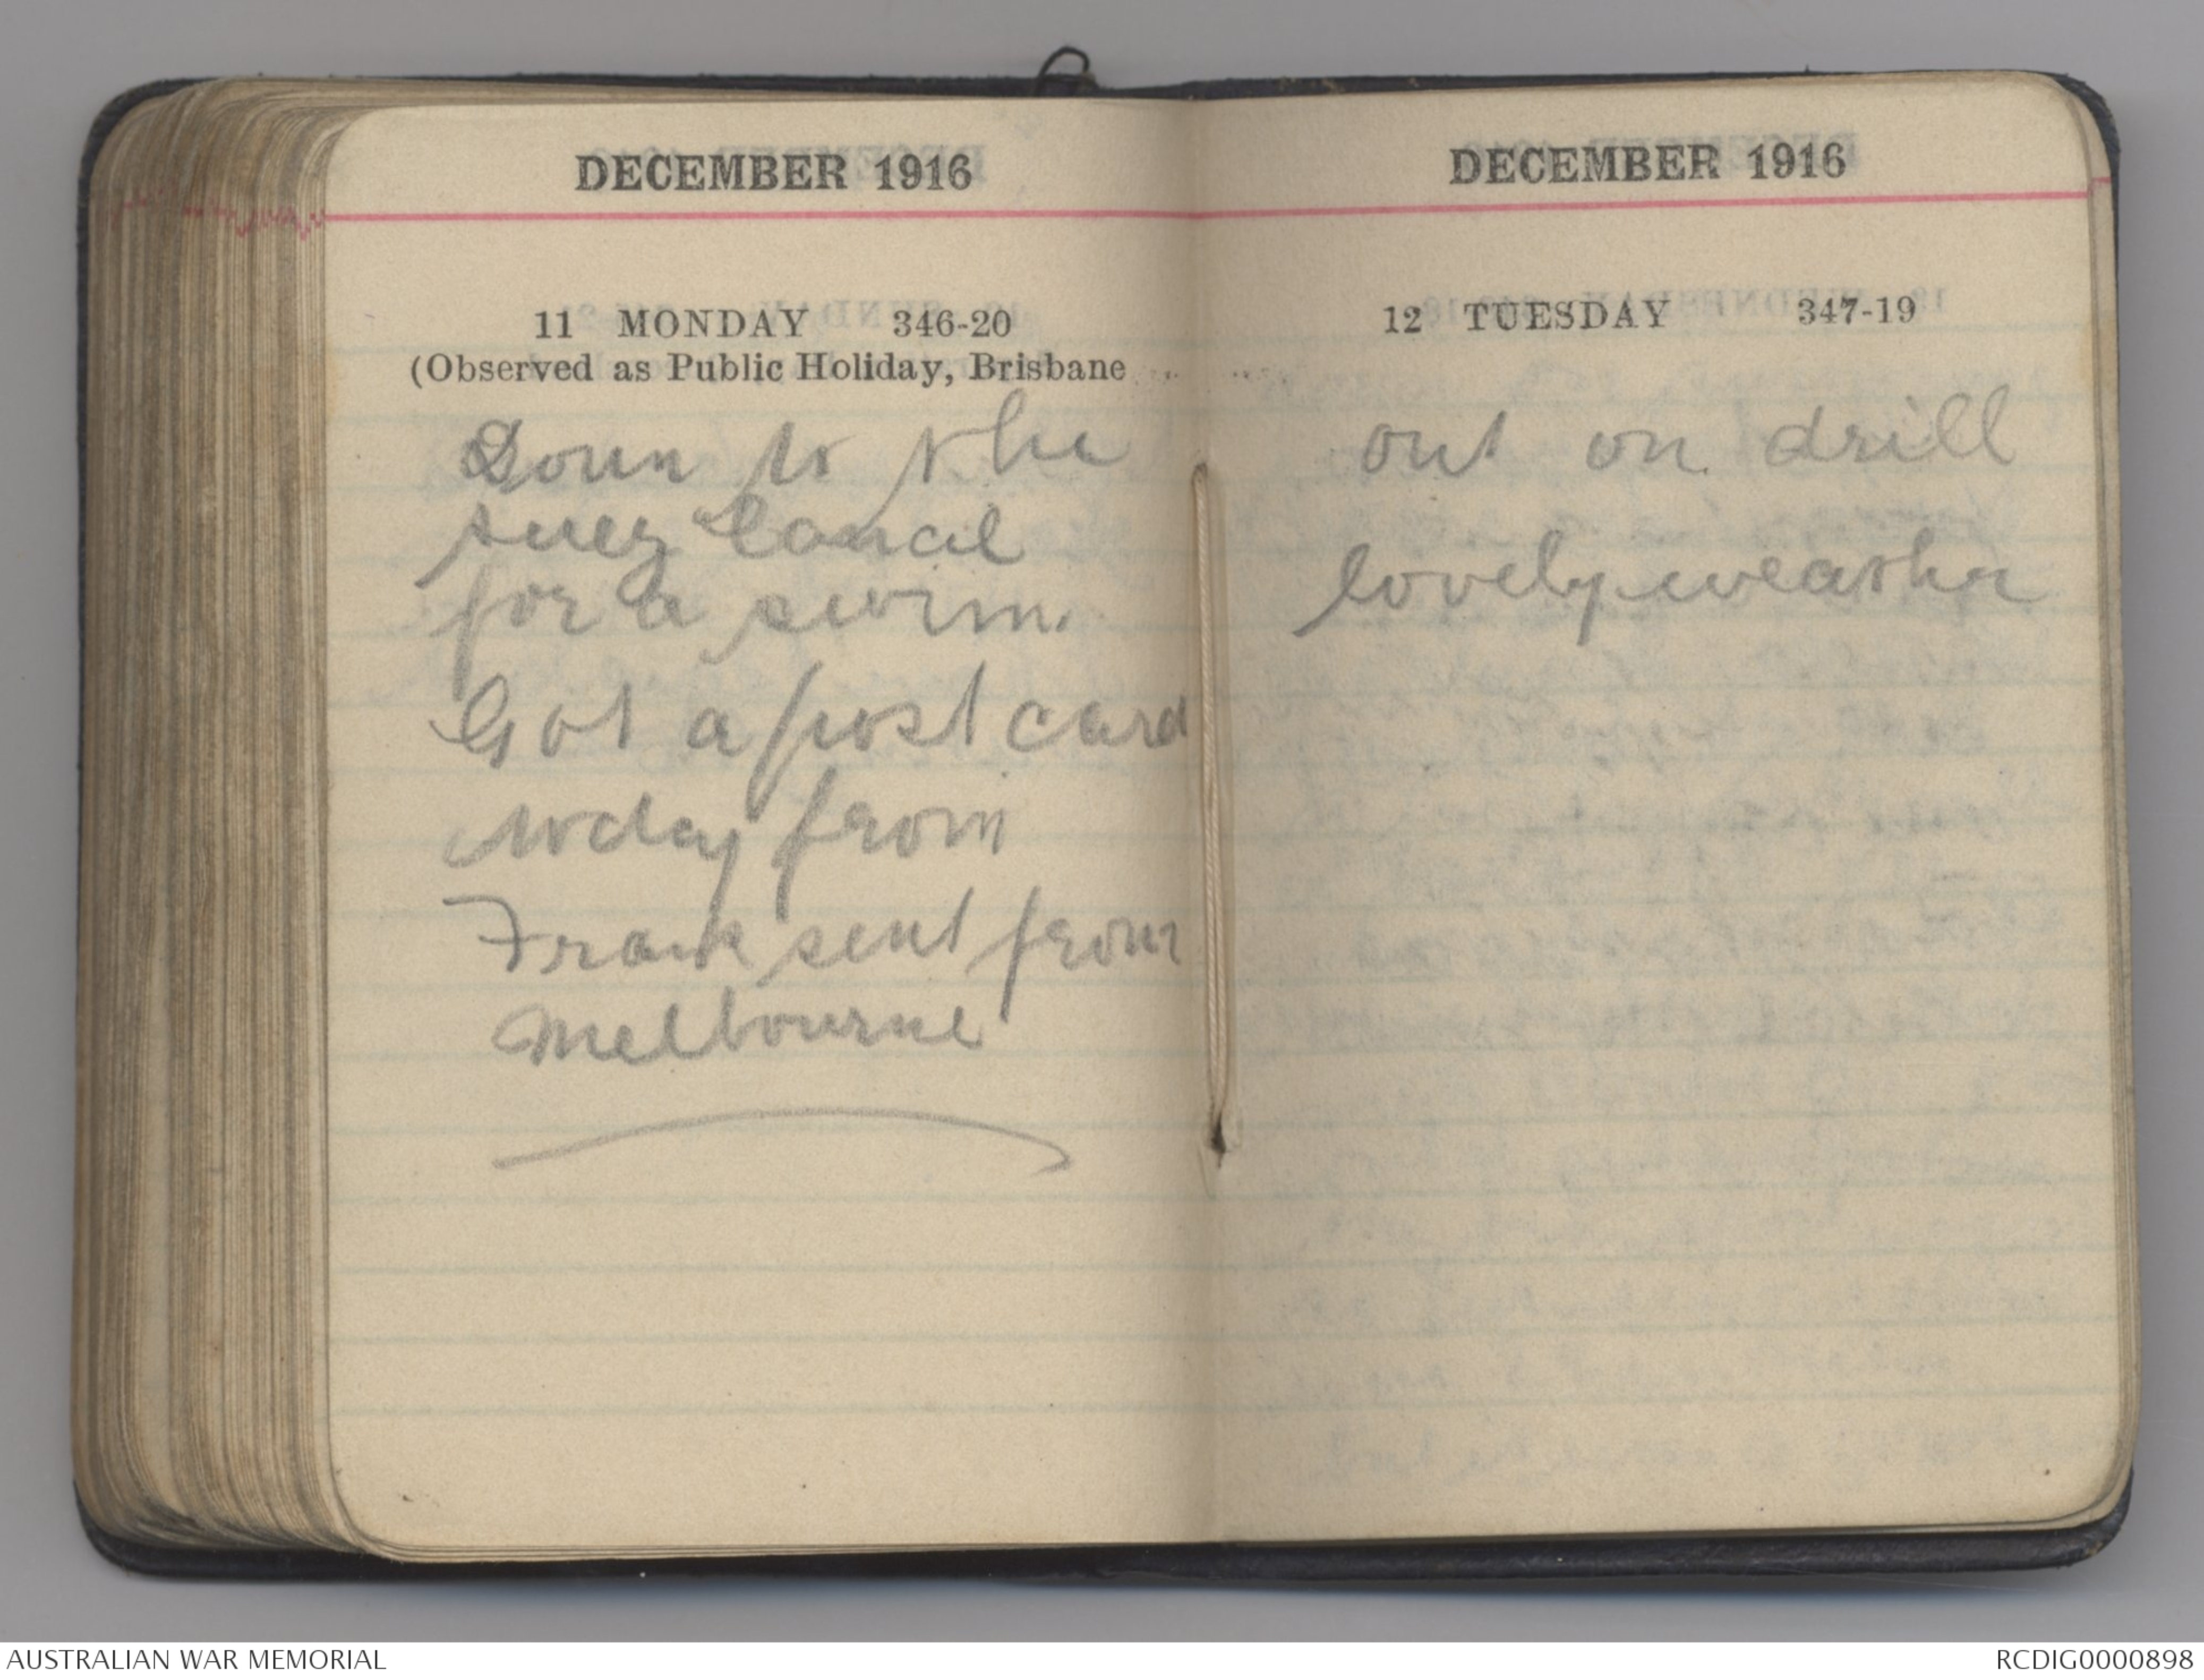 DECEMBER 1916
11 MONDAY 346-20
(Observed as Public Holiday, Brisbane
Down to the
Suez Canal
for a swim.
Got a post card
today from
Frank sent from
Melbourne
DECEMBER 1916
12 TUESDAY 347-19
out on drill
lovely weather
AUSTRALIAN WAR MEMORIAL
RCDIG0000898